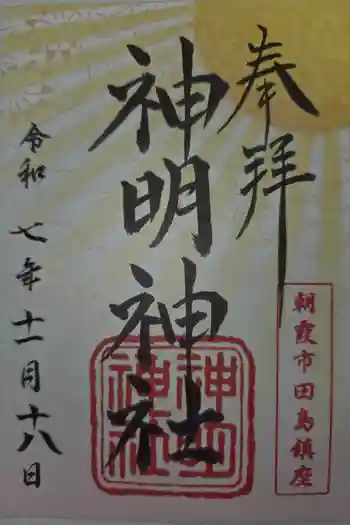 奉拝
朝霞市田島鎮座
神明神社
令和七年十一月十八日